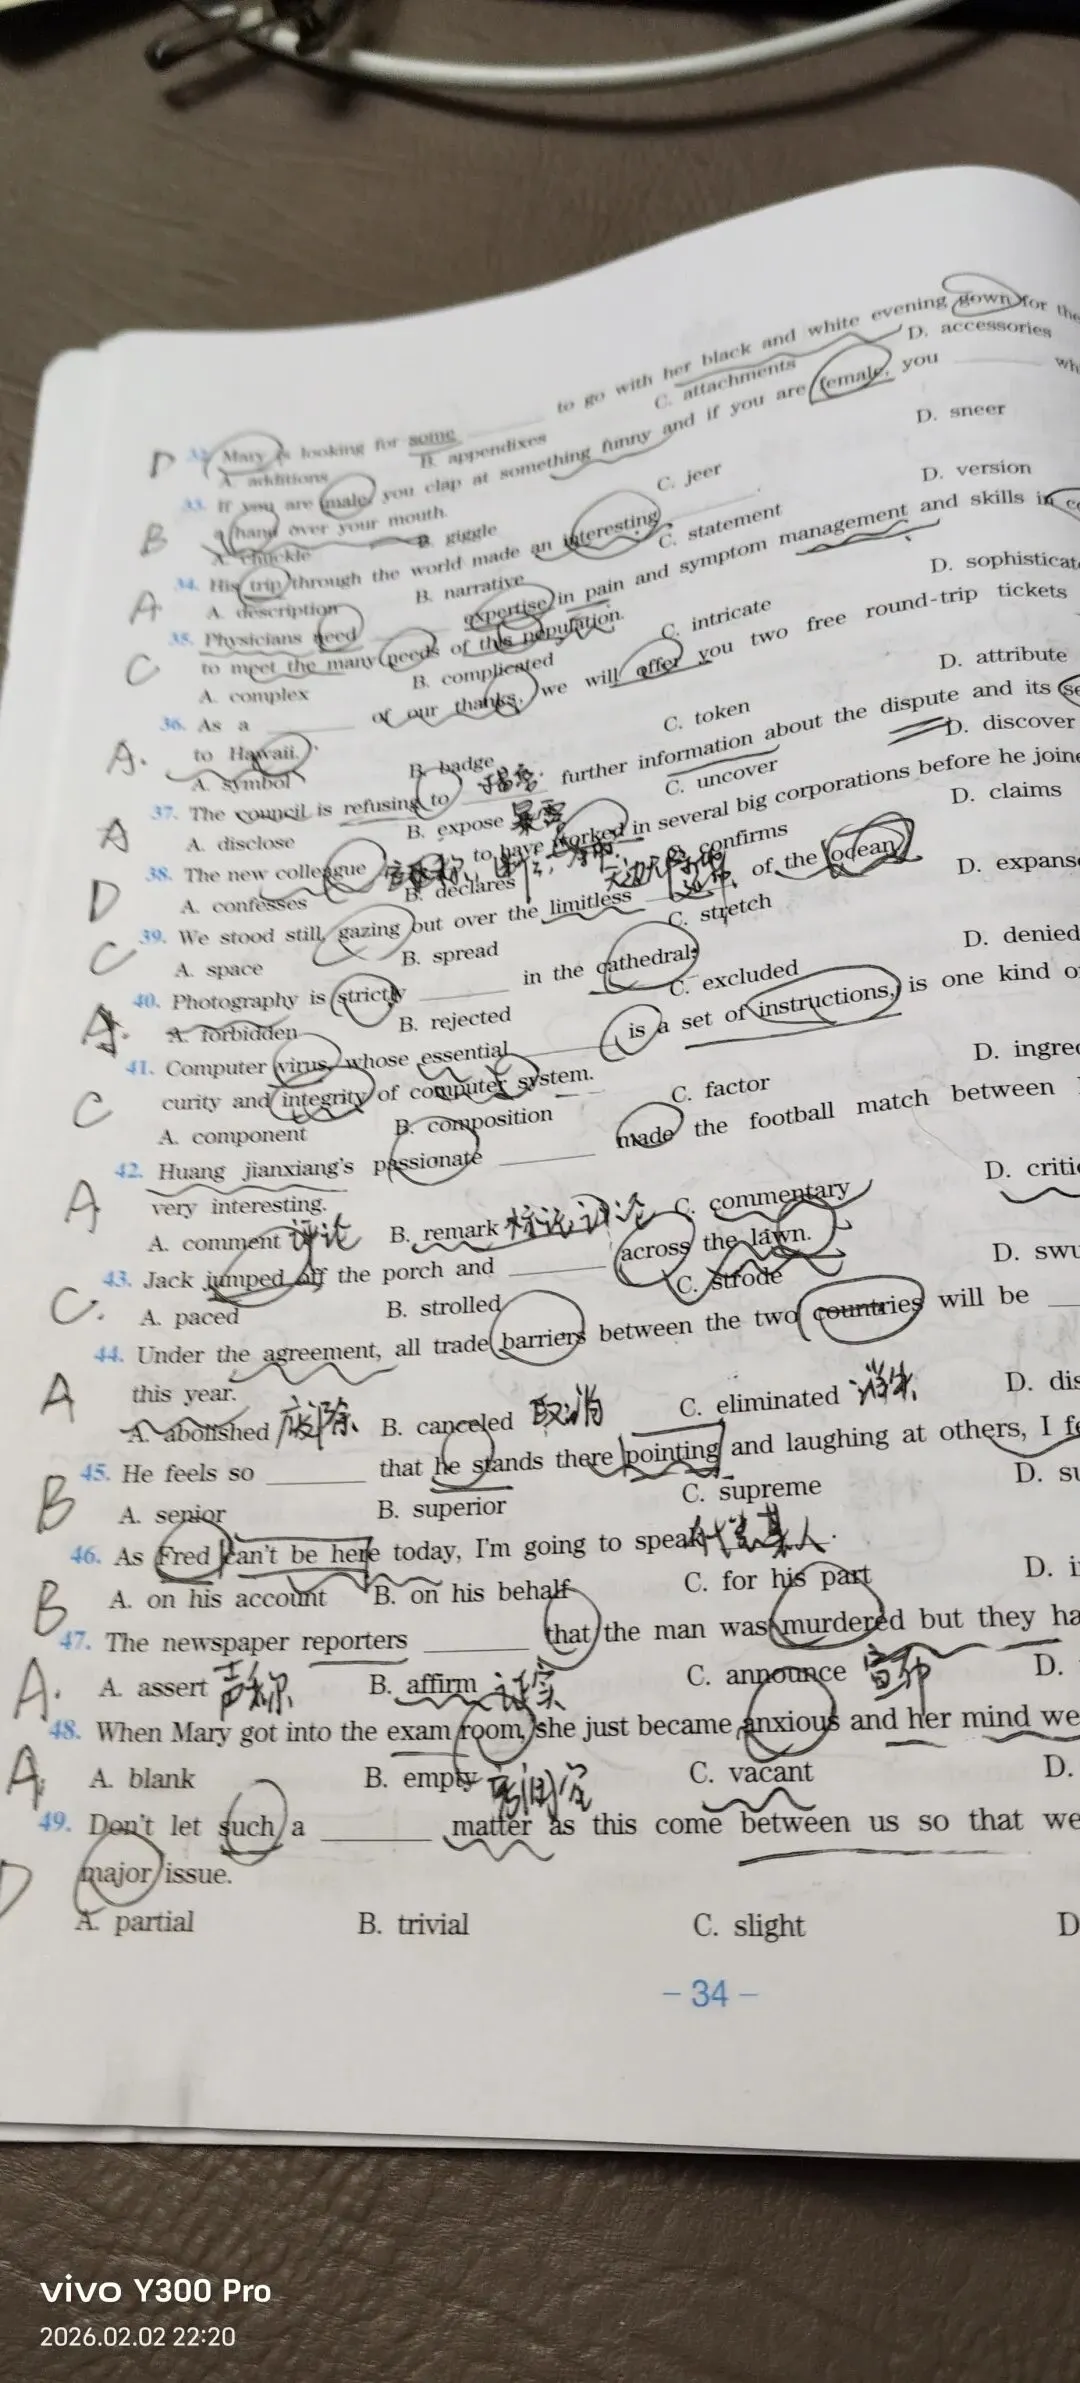 to go with her black and white evening gown for the
D 32. Mary is looking for some
A. additions B. appendixes C. attachments D. accessories
33. If you are male, you clap at something funny and if you are female, you wh
a hand over your mouth.
B A. chuckle B. giggle C. jeer D. sneer
34. His trip through the world made an interesting .
A A. description B. narrative C. statement D. version
35. Physicians need expertise in pain and symptom management and skills in co
to meet the many needs of this population.
C A. complex B. complicated C. intricate D. sophisticate
36. As a of our thanks, we will offer you two free round-trip tickets
to Hawaii.
A. A. symbol B. badge C. token D. attribute
37. The council is refusing to further information about the dispute and its se
A A. disclose B. expose 暴露 C. uncover D. discover
38. The new colleague to have worked in several big corporations before he joine
D A. confesses B. declares C. confirms D. claims
39. We stood still, gazing out over the limitless of the ocean
C A. space B. spread C. stretch D. expans
40. Photography is strictly in the cathedral.
A. A. forbidden B. rejected C. excluded D. denied
41. Computer virus, whose essential is a set of instructions, is one kind o
curity and integrity of computer system.
C A. component B. composition C. factor D. ingred
42. Huang jianxiang's passionate made the football match between
very interesting.
A A. comment 评论 B. remark 标记 评论 C. commentary D. critic
43. Jack jumped off the porch and across the lawn.
C. A. paced B. strolled C. strode D. swu
44. Under the agreement, all trade barriers between the two countries will be
this year.
A A. abolished 废除 B. canceled 取消 C. eliminated 消失 D. dis
45. He feels so that he stands there pointing and laughing at others, I fe
B A. senior B. superior C. supreme D. su
46. As Fred can't be here today, I'm going to speak 代表某人.
B A. on his account B. on his behalf C. for his part D. i
47. The newspaper reporters that the man was murdered but they ha
A. A. assert 声称 B. affirm 证实 C. announce 宣布 D.
48. When Mary got into the exam room, she just became anxious and her mind we
A. A. blank B. empty C. vacant D.
49. Don't let such a matter as this come between us so that we
D major issue.
A. partial B. trivial C. slight D
– 34 –
vivo Y300 Pro
2026.02.02 22:20